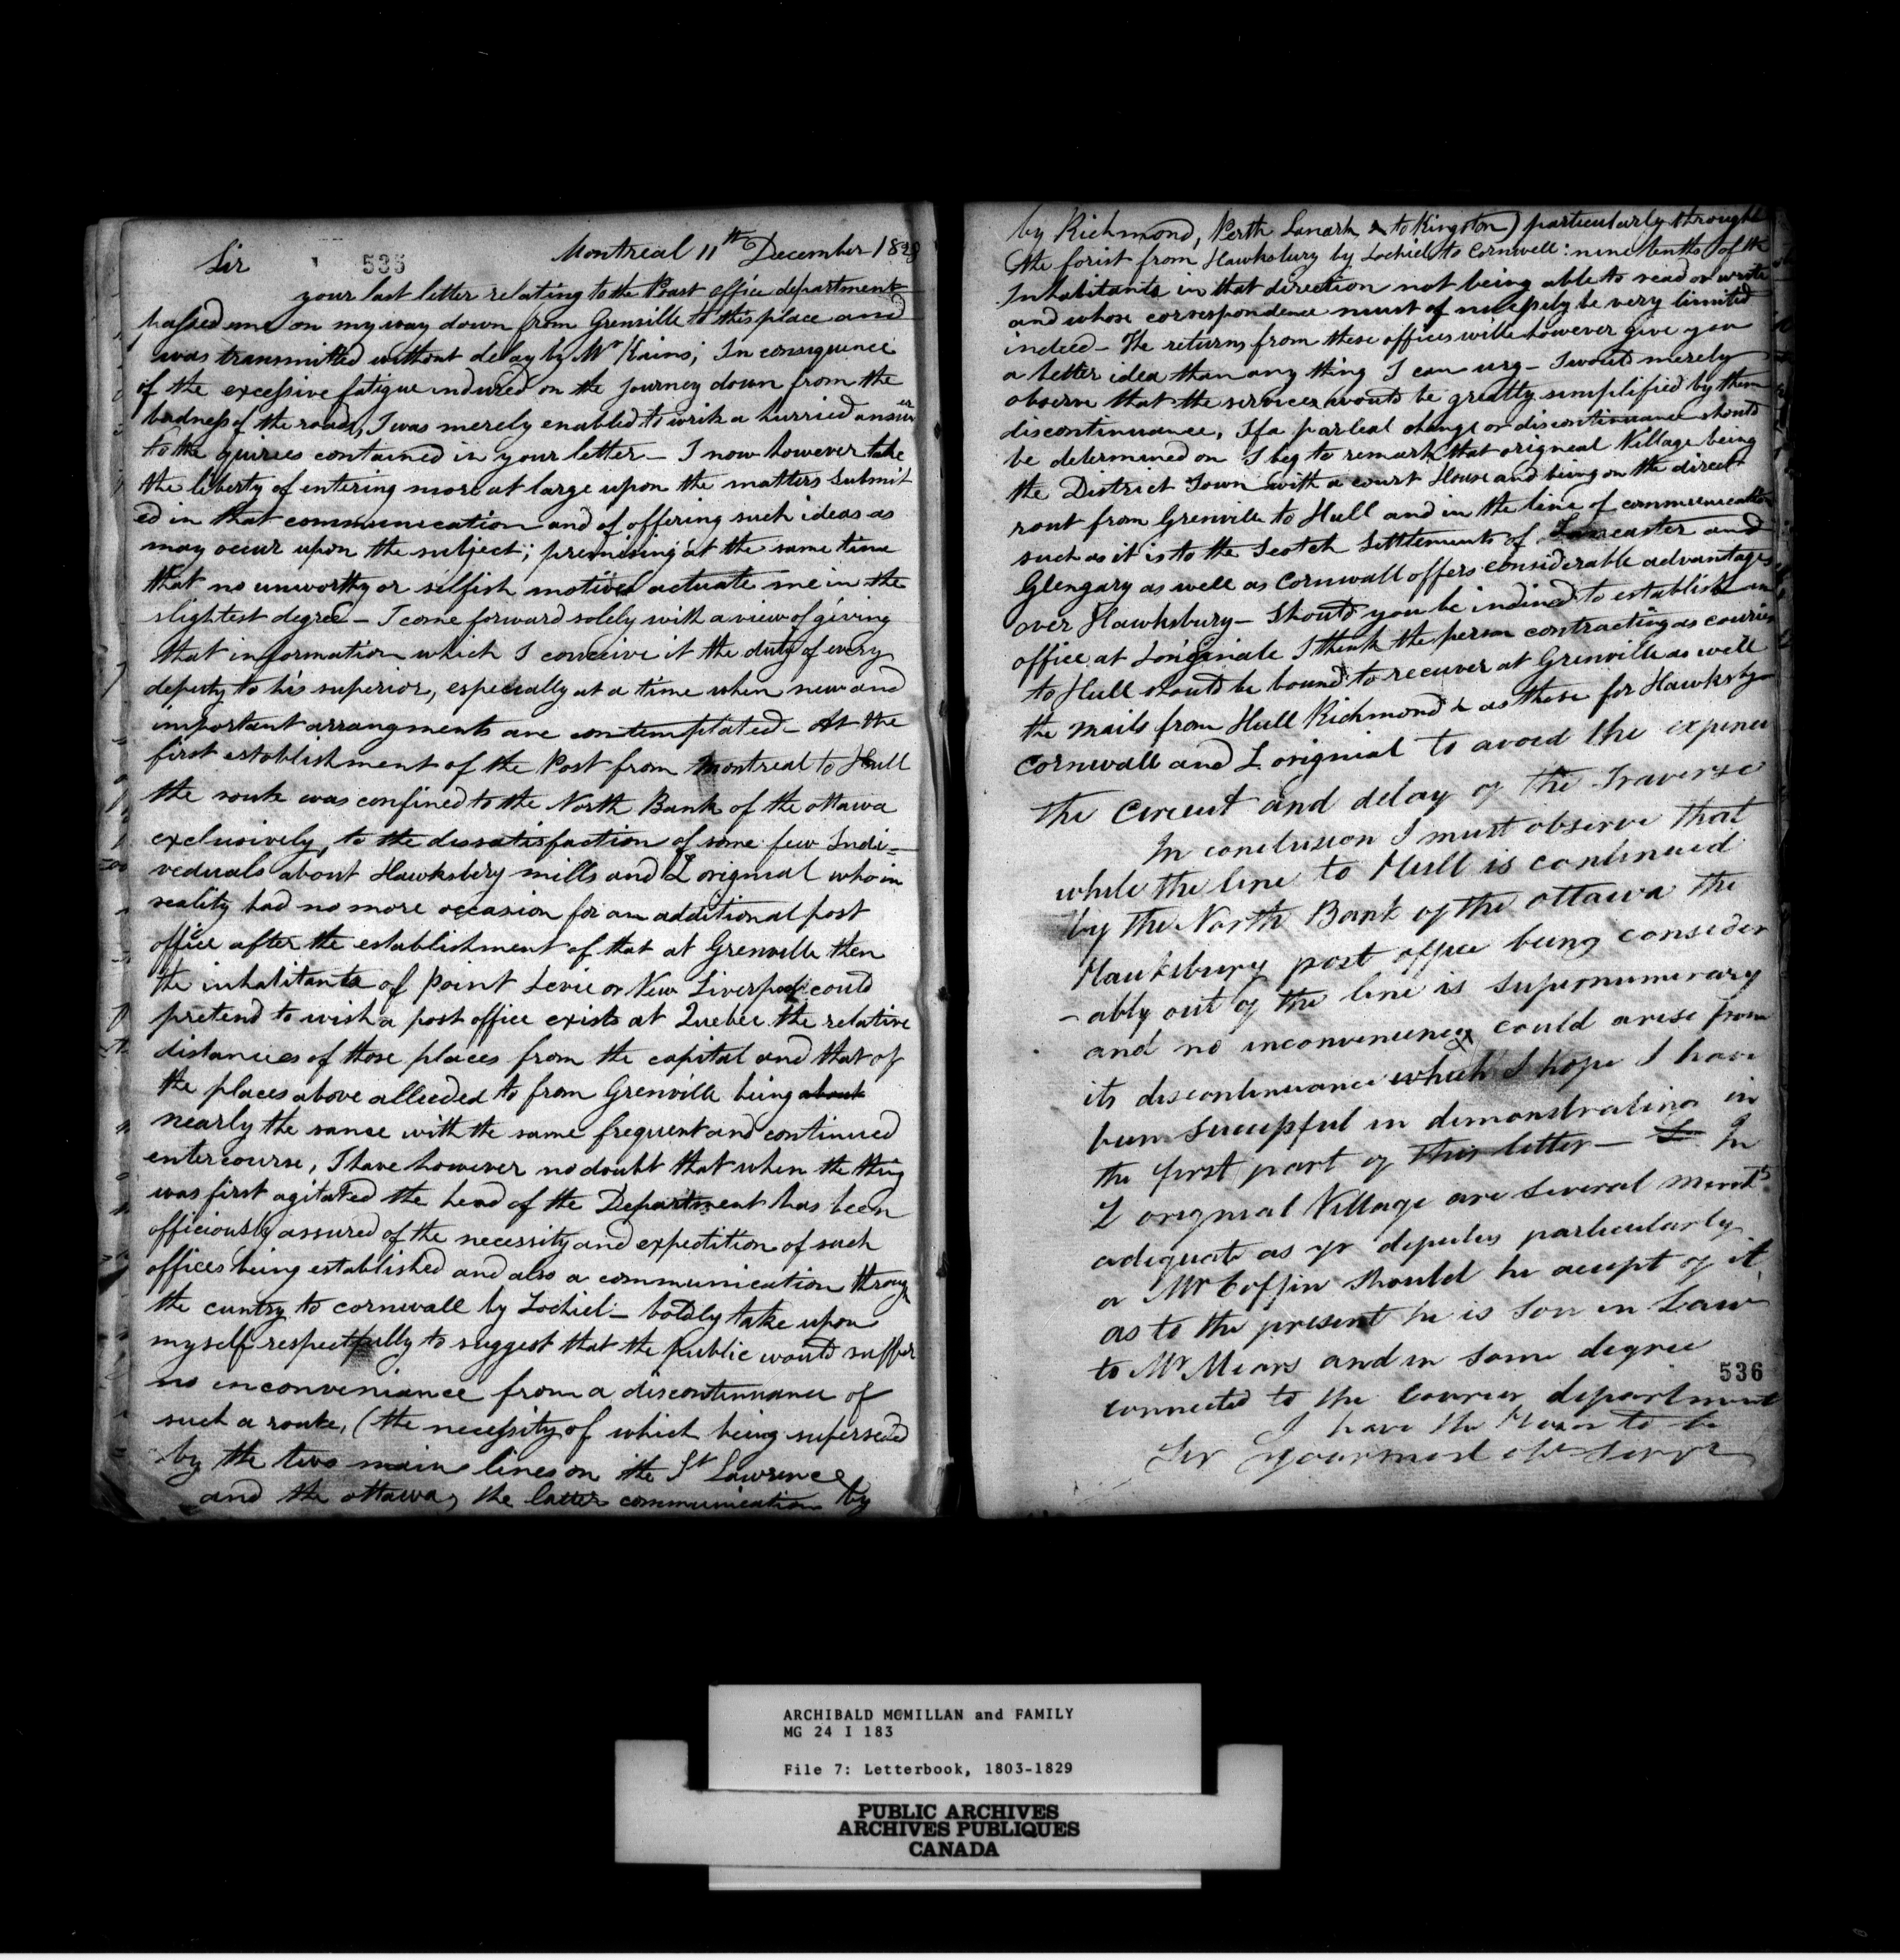 535
Montreal 11th December 1828
Sir
your last letter relating to the Poast office department
passed me on my way down from Grenville to this place and
was transmitted without delay by Mr Kains; In consequence
of the excessive fatigue indured on the journey down from the
badness of the roads, I was merely enabled to write a hurried answer
to the quiries contained in your letter — I now however take
the liberty of entering more at large upon the matters submit
ed in that communication and of offering such ideas as
may occur upon the subject; premising at the same time
that no unworthy or selfish motives actuate me in the
slightest degree — I come forward solely with a view of giving
that information which I conceive it the duty of every
deputy to his superior, especially at a time when new and
important arrangments are contemplated — At the
first establishment of the Post from Montreal to Hull
the route was confined to the North Bank of the ottawa
exclusively, to the dissatisfaction of some few Indi=
veduals about Hawksbery mills and L orignial who in
reality had no more occasion for an additional post
office after the establishment of that at Grenville then
the inhabitants of Point Levie or New Liverpool could
pretend to wish a post office exists at Quebec the relative
distances of those places from the capital and that of
the places above alleeded to from Grenville being about
nearly the same with the same frequent and continued
entercourse, I have however no doubt that when the thing
was first agitated the head of the Department has been
officiously assured of the necessity and expedition of such
offices being established and also a communication throug
the cuntry to cornwall by Lochiel — boldly take upon
myself respectfully to suggest that the public would suffer
no inconveniance from a discontinuance of
such a route, (the necessity of which being superseded
by the two main lines on the St Lawrence
and the ottawa, the latter communication by
by Richmond, Perth Lanark & to Kingston) particularly through
the forist from Hawksbury by Lochiel to Cornwell: nine tenths of the
Inhabitants in that direction not being able to read or write
and whose correspondence must of necessity be very limited
indeed — The returns from these offices will however give you
a better idea than any thing I can urg — I would merely
observe that the services would be greatly simplified by them
discontinuance, If a parteal change or discontinuance should
be determined on I beg to remark that origneal Village being
the District Town with a court House and being on the direct
rout from Grenville to Hull and in the line of communication
such as it is to the Scotch Settlements of Lancaster and
Glengary as well as Cornwall offers considerable advantages
over Hawksbury — Should you be indined to establish an
office at Longinale I think the person contracting as courier
to Hull should be bound to receiver at Grenville as well
the mails from Hull Richmond & as these for Hawksby
Cornwall and L orignial to avoid the expence
the Circuit and delay of the Traverse
In conclusion I must observe that
while the line to Hull is continued
by the North Bank of the ottawa the
Hawksbury post office being consider
-ably out of the line is supernumerary
and no inconveniency could arise from
its discontinuance which I hope I have
been successful in demonstrating in
the first part of this letter — In
L orignial Village are several mercts
adequate as yr deputies particularly
a Mr Coffin should he accept of it
as to the present he is Son in Law
to Mr Mears and in some degree
connected to the Courier department
I have the Honor to be
Sir your most obt Servt
536
ARCHIBALD McMILLAN and FAMILY
MG 24 I 183
File 7: Letterbook, 1803-1829
PUBLIC ARCHIVES
ARCHIVES PUBLIQUES
CANADA